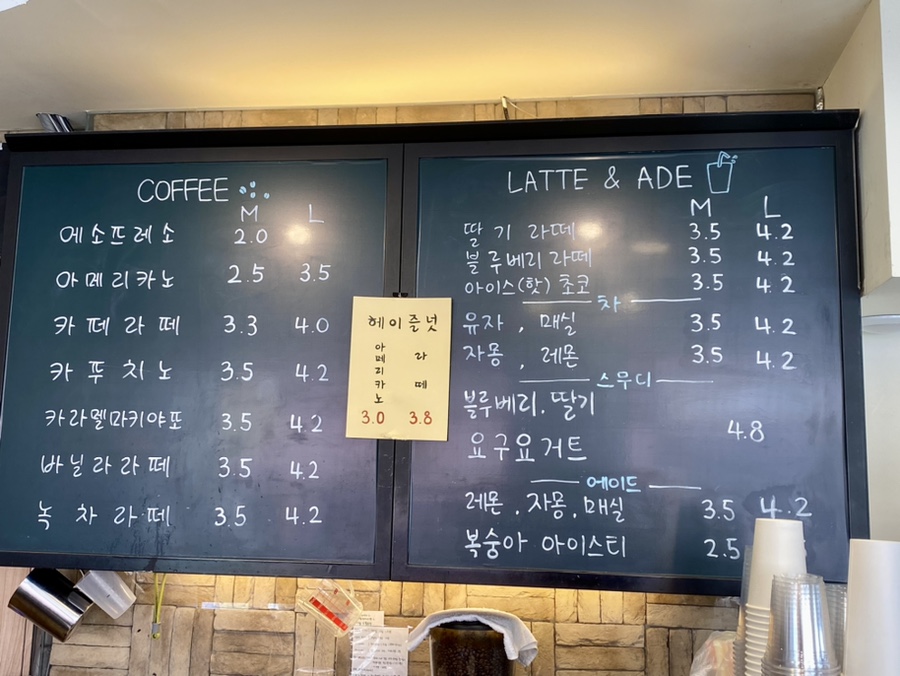 COFFEE
M L
에소프레소 2.0
아메리카노 2.5 3.5
카떼라떼 3.3 4.0
카푸치노 3.5 4.2
카라멜마키야또 3.5 4.2
바닐라라떼 3.5 4.2
녹차라떼 3.5 4.2
헤이즐넛
아메리카노 라떼
3.0 3.8
LATTE & ADE
M L
딸기 라떼 3.5 4.2
블루베리 라떼 3.5 4.2
아이스(핫) 초코 3.5 4.2
차
유자, 매실 3.5 4.2
자몽, 레몬 3.5 4.2
스무디
블루베리, 딸기
4.8
요구요거트
에이드
레몬, 자몽, 매실 3.5 4.2
복숭아 아이스티 2.5